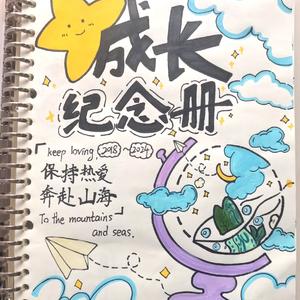 成长
纪念册
keep loving, 2018~2024
保持热爱
奔赴山海
To the mountains
and seas.